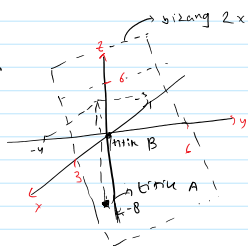 bizang 2x
z
6
-4
titik B
y
3
6
x
titik A
-8